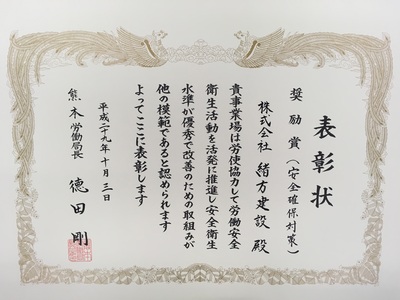 表彰状
奨励賞(安全確保対策)
株式会社 緒方建設 殿
貴事業場は労使協力して労働安全
衛生活動を活発に推進し安全衛生
水準が優秀で改善のための取組みが
他の模範であると認められます
よってここに表彰します
平成二十九年十月三日
熊本労働局長
徳田剛